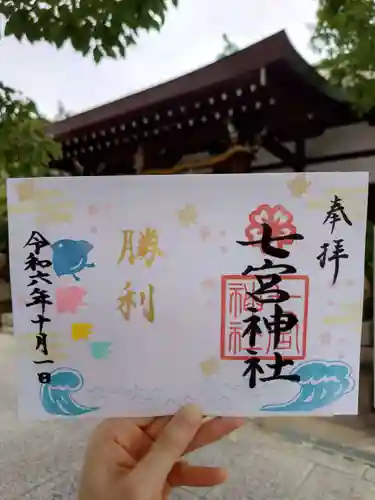 奉拝
七宮神社
勝利
令和六年十月一日